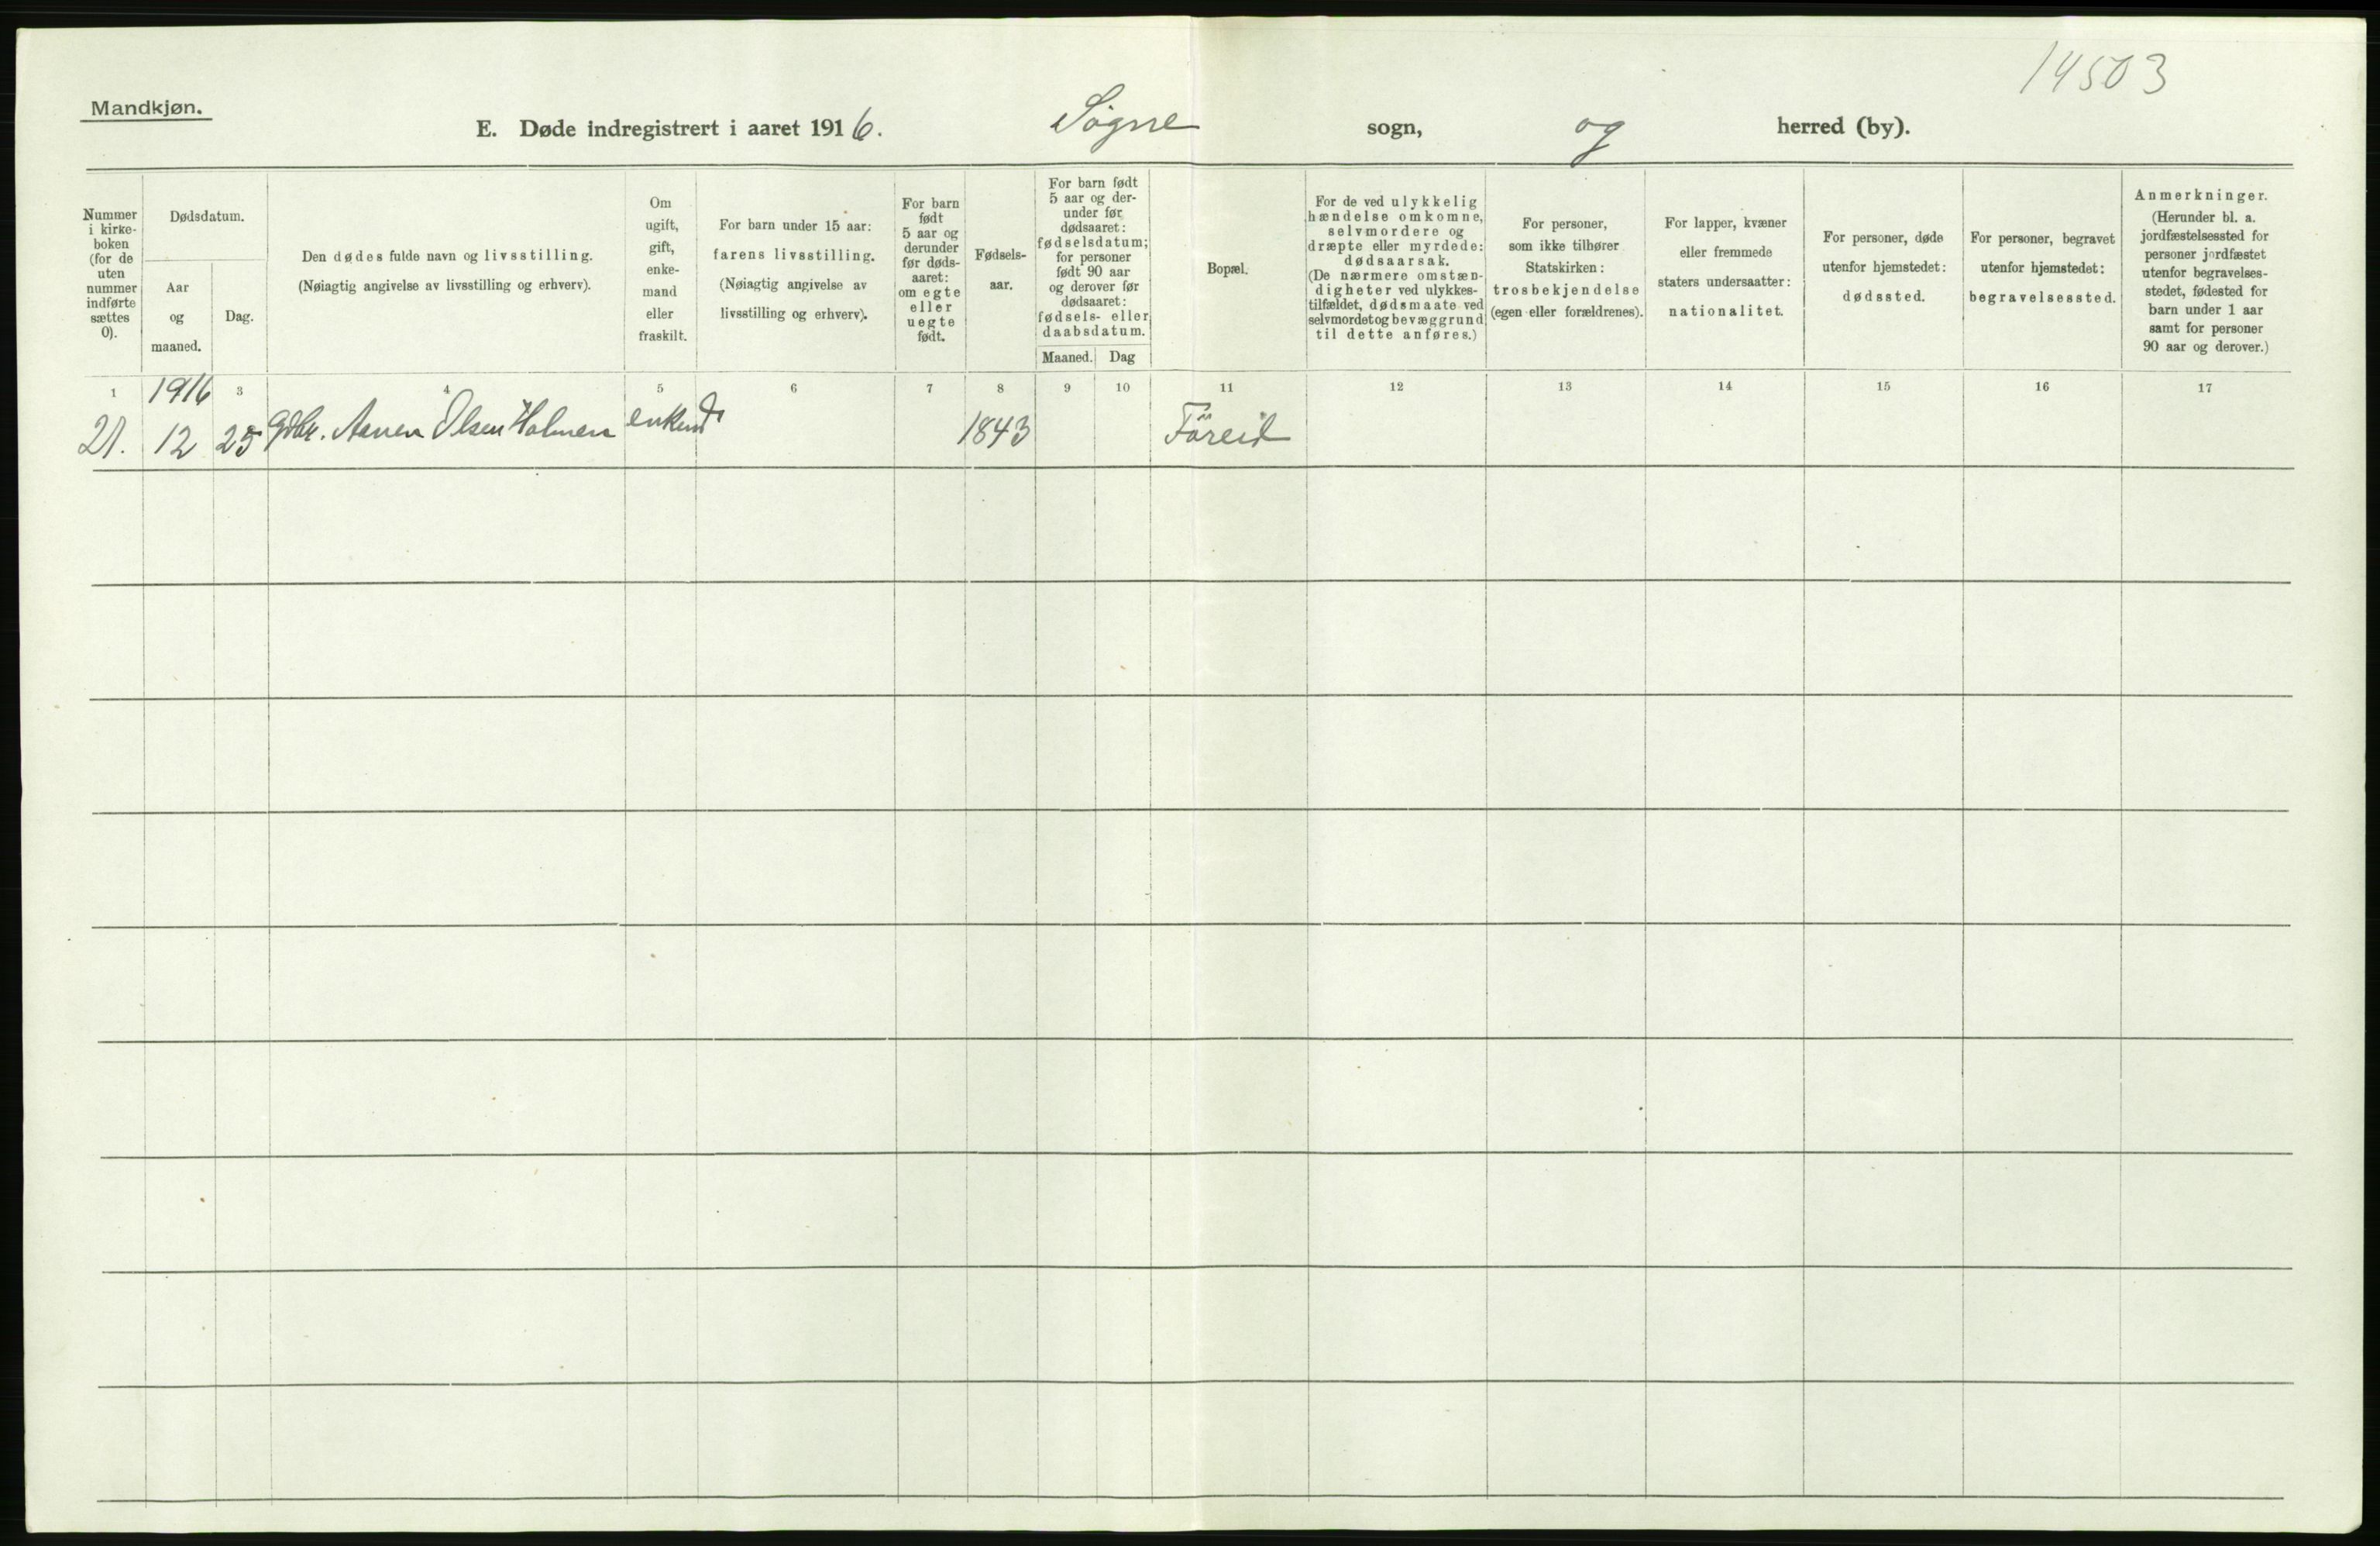 14503
Mandkjøn.
E. Døde indregistrert i aaret 1916. Søgne sogn, og herred (by).
Nummer
i kirke-
boken
(for de
uten
nummer
indførte
sættes
0).
Dødsdatum.
Aar
og
maaned.
Dag.
Den dødes fulde navn og livsstilling.
(Nøiagtig angivelse av livsstilling og erhverv).
Om
ugift,
gift,
enke-
mand
eller
fraskilt.
For barn under 15 aar:
farens livsstilling.
(Nøiagtig angivelse av
livsstilling og erhverv).
For barn
født
5 aar og
derunder
før døds-
aaret:
om egte
eller
uegte
født.
Fødsels-
aar.
For barn født
5 aar og der-
under før
dødsaaret:
fødselsdatum;
for personer
født 90 aar
og derover før
dødsaaret:
fødsels- eller
daabsdatum.
Maaned. Dag
Bopæl.
For de ved ulykkelig
hændelse omkomne,
selvmordere og
dræpte eller myrdede:
dødsaarsak.
(De nærmere omstæn-
digheter ved ulykkes-
tilfældet, dødsmaate ved
selvmordet og bevæggrund
til dette anføres.)
For personer,
som ikke tilhører
Statskirken:
trosbekjendelse
(egen eller forældrenes).
For lapper, kvæner
eller fremmede
staters undersaatter:
nationalitet.
For personer, døde
utenfor hjemstedet:
dødssted.
For personer, begravet
utenfor hjemstedet:
begravelsessted.
Anmerkninger.
(Herunder bl. a.
jordfæstelsessted for
personer jordfæstet
utenfor begravelses-
stedet, fødested for
barn under 1 aar
samt for personer
90 aar og derover.)
1 1916 3 4 5 6 7 8 9 10 11 12 13 14 15 16 17
21. 12 25 Gdbr. Aanen Olsen Holmen enkemd 1843 Töreid